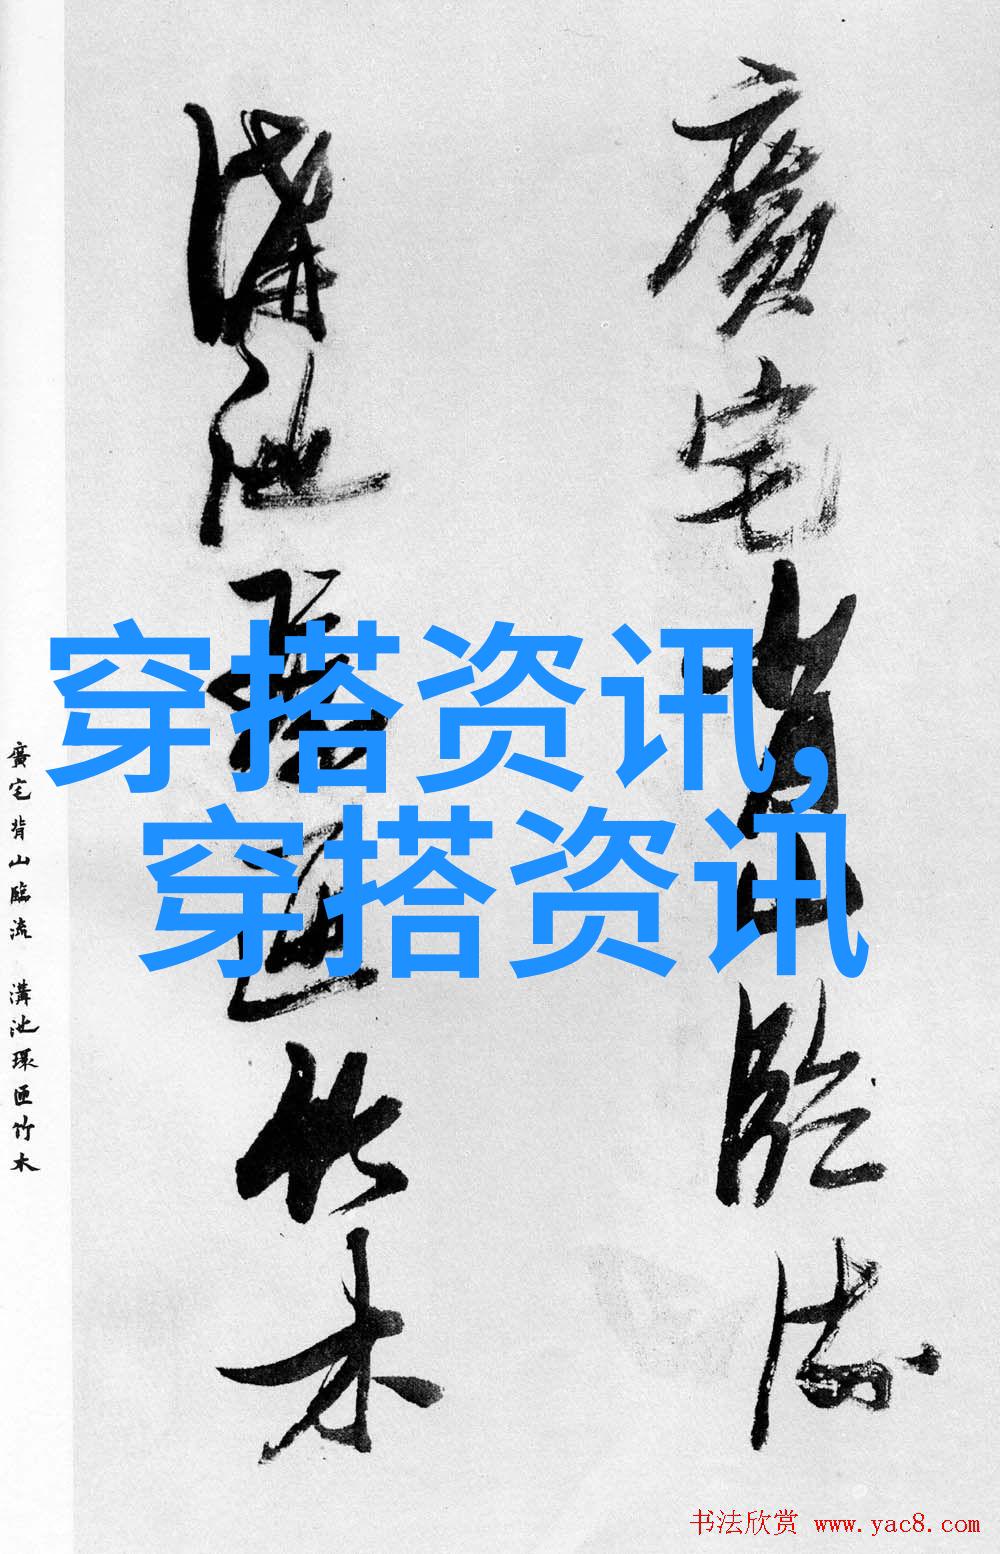 廣宅背山臨流
溝池環匝竹木
廣宅背山臨流 溝池環匝竹木
穿搭资讯,
穿搭资讯
书法欣赏 www.yac8.com